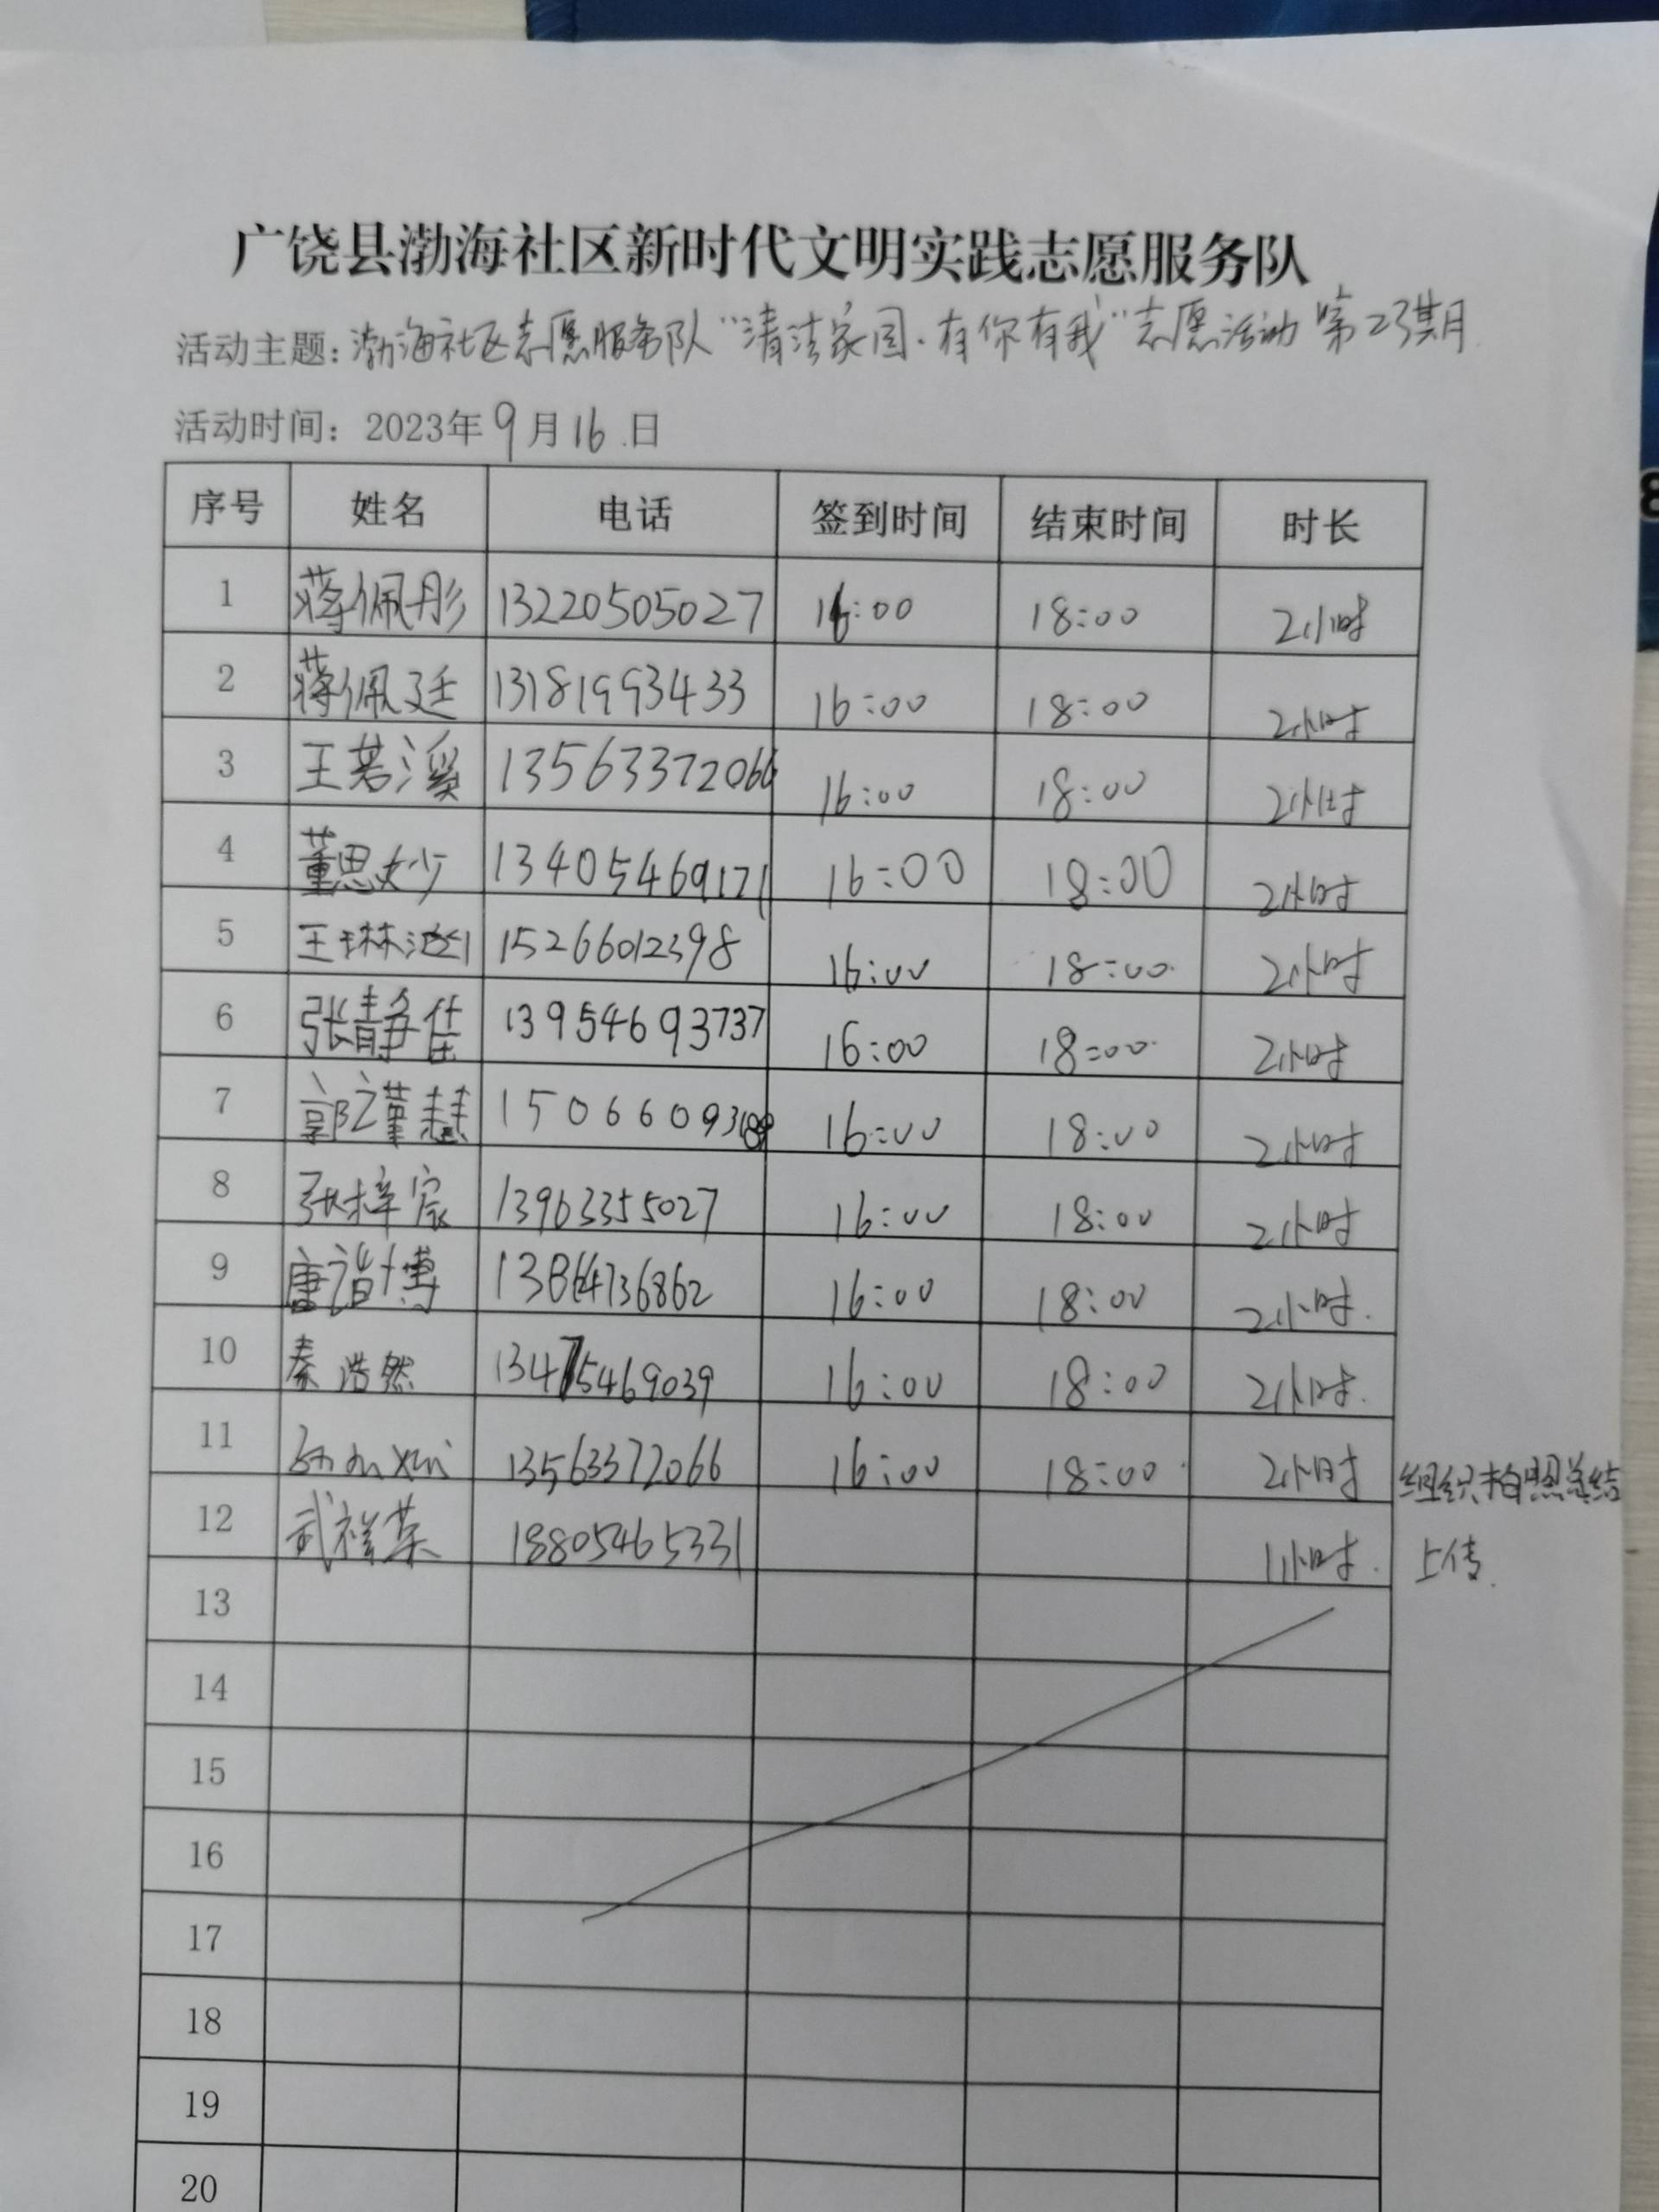 广饶县渤海社区新时代文明实践志愿服务队
活动主题：渤海社区志愿服务队“清洁家园·有你有我”志愿活动第23期
活动时间：2023年9月16日
序号 姓名 电话 签到时间 结束时间 时长
1 蒋佩彤 13220505027 16:00 18:00 2小时
2 蒋佩廷 13181993433 16:00 18:00 2小时
3 王若溪 13563372066 16:00 18:00 2小时
4 董思妙 13405469171 16:00 18:00 2小时
5 王琳 15266012398 16:00 18:00 2小时
6 张静佳 13954693737 16:00 18:00 2小时
7 郭谨慧 16:00 18:00 2小时
8 张梓宸 13963355027 16:00 18:00 2小时
9 唐诣博 13864736862 16:00 18:00 2小时.
10 秦浩然 13475469039 16:00 18:00 2小时.
11 13563372066 16:00 18:00 2小时 组织拍照总结
12 武祥荣 18805465331 1小时. 上传.
13
14
15
16
17
18
19
20